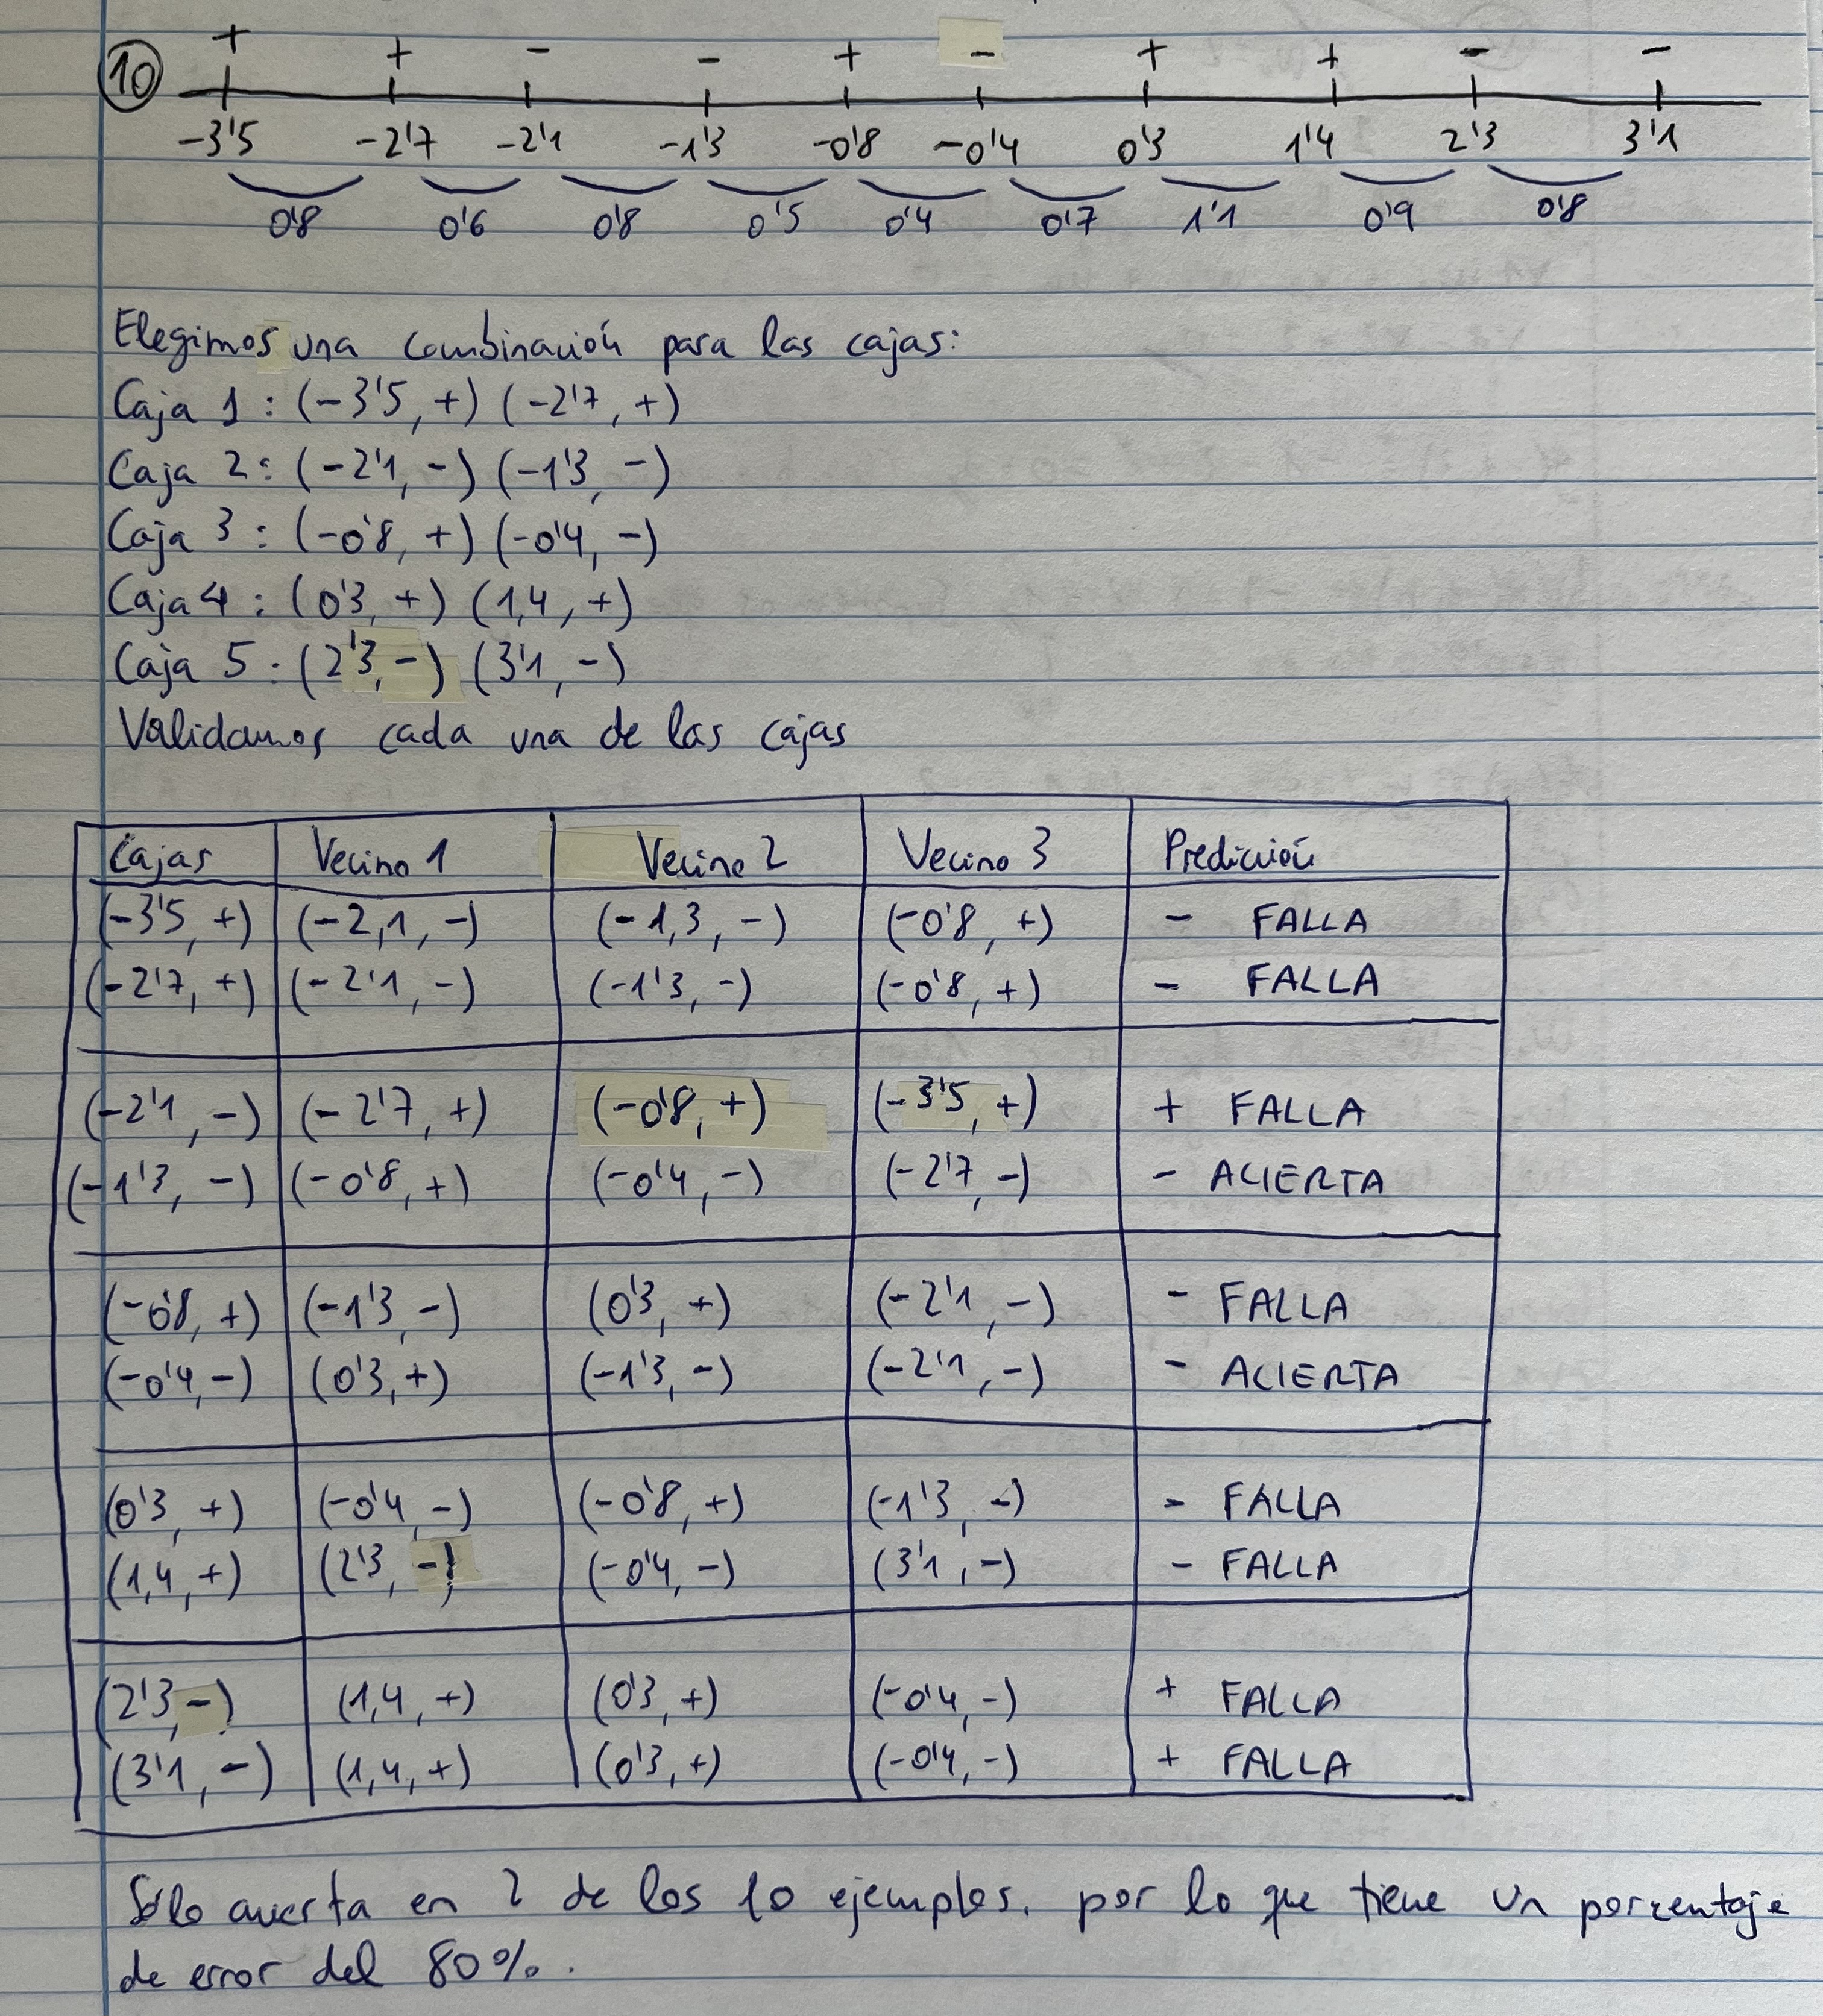 10
+ + - - + - + + - -
-3'5 -2'7 -2'1 -1'3 -0'8 -0'4 0'3 1'4 2'3 3'1
0'8 0'6 0'8 0'5 0'4 0'7 1'1 0'9 0'8
Elegimos una combinación para las cajas:
Caja 1: (-3'5, +) (-2'7, +)
Caja 2: (-2'1, -) (-1'3, -)
Caja 3: (-0'8, +) (-0'4, -)
Caja 4: (0'3, +) (1,4, +)
Caja 5: (2'3, -) (3'1, -)
Validamos cada una de las cajas
Cajas Vecino 1 Vecino 2 Vecino 3 Predicción
(-3'5, +) (-2,1, -) (-1,3, -) (-0'8, +) - FALLA
(-2'7, +) (-2'1, -) (-1'3, -) (-0'8, +) - FALLA
(-2'1, -) (-2'7, +) (-0'8, +) (-3'5, +) + FALLA
(-1'3, -) (-0'8, +) (-0'4, -) (-2'7, -) - ACIERTA
(-0'8, +) (-1'3, -) (0'3, +) (-2'1, -) - FALLA
(-0'4, -) (0'3, +) (-1'3, -) (-2'1, -) - ACIERTA
(0'3, +) (-0'4, -) (-0'8, +) (-1'3, -) - FALLA
(1,4, +) (2'3, -) (-0'4, -) (3'1, -) - FALLA
(2'3, -) (1,4, +) (0'3, +) (-0'4, -) + FALLA
(3'1, -) (1,4, +) (0'3, +) (-0'4, -) + FALLA
Sólo acierta en 2 de los 10 ejemplos, por lo que tiene un porcentaje
de error del 80%.